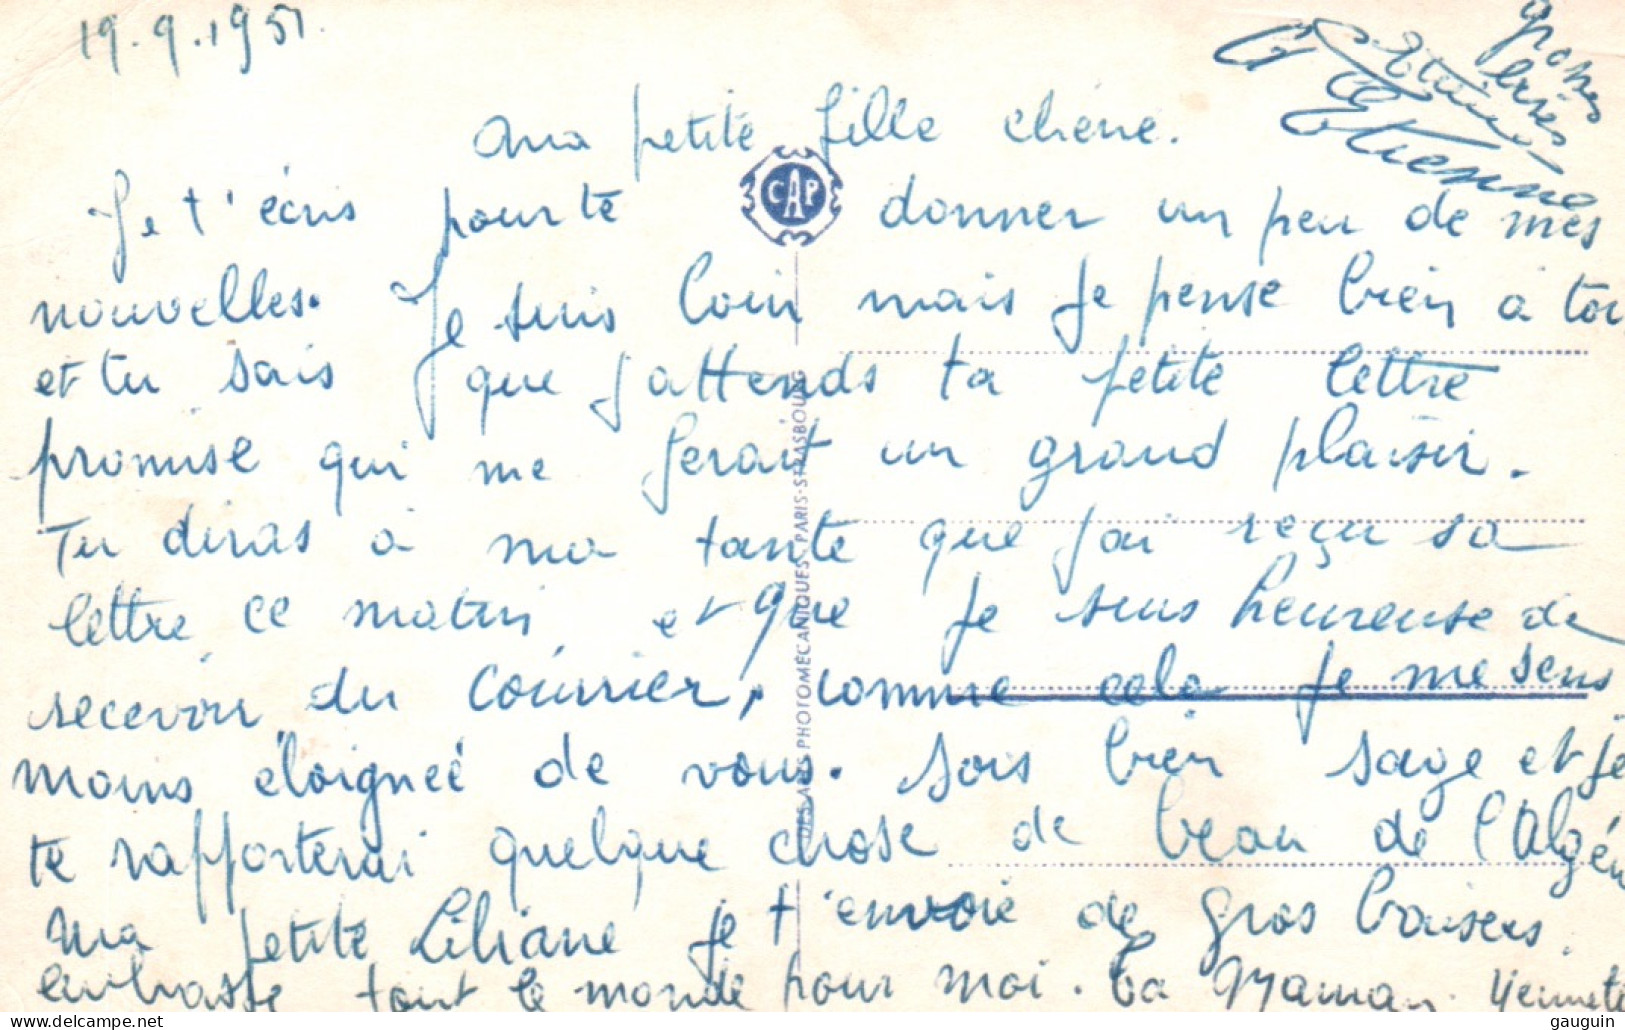 19.9.1951.
Grosses
bises
Etienne
ma petite fille chérie.
CAP
Je t'écris pour te donner un peu de mes
nouvelles. Je suis loin mais je pense bien à toi
et tu sais que j'attends ta petite lettre
promise qui me ferait un grand plaisir.
Tu diras à ma tante que j'ai reçu sa
lettre ce matin et que je suis heureuse de
recevoir du courrier, comme cela je me sens
moins éloigneé de vous. Sois bien sage et je
te rapporterai quelque chose de beau de l'Algérie
Ma petite Liliane je t'envoie de gros baisers.
embrasse tout le monde pour moi. ta Maman
DES ARTS PHOTOMÉCANIQUES PARIS-STRASBOURG
www.delcampe.net
gauguin